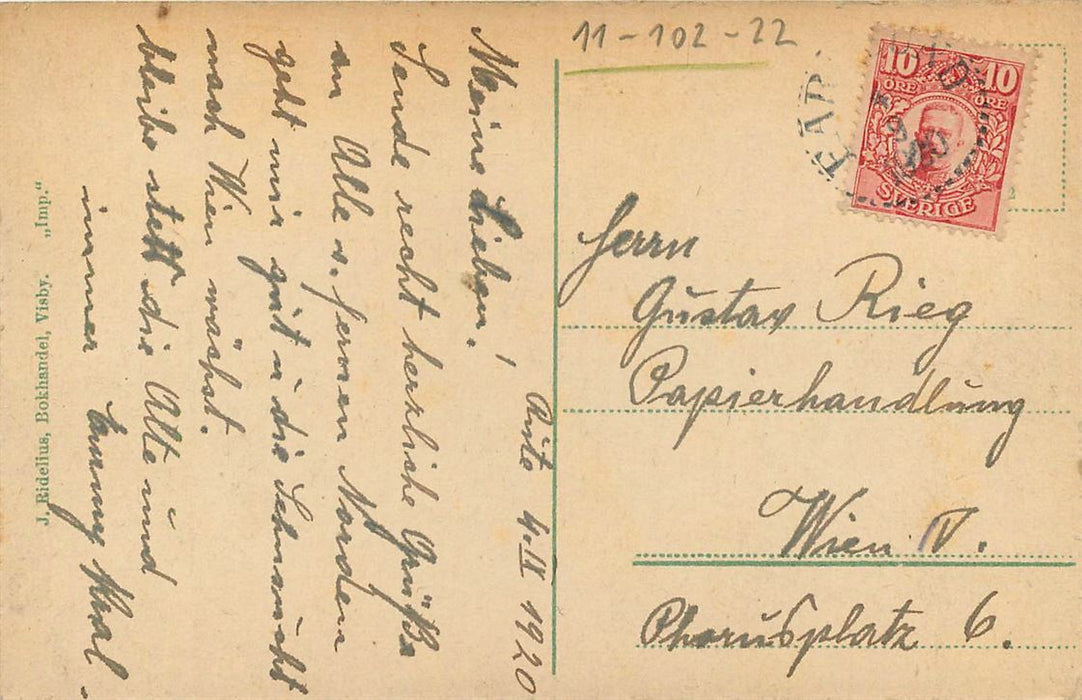 11-102-22
FÅR
10 10
ÖRE ÖRE
SVERIGE
Herrn
Gustav Rieg
Papierhandlung
Wien V.
Phorusplatz 6.
Rute 4. II 1920
Meine Lieben!
Sende recht herzliche Grüße
an Alle v. fernen Norden
geht mir gut u die Sehnsucht
nach Wien wächst.
bleibe stets die Alte und
immer
J. Ridelius, Bokhandel, Visby. „Imp."